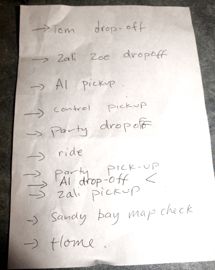 → Tom drop-off
→ Zali Zoo dropoff
→ Al pickup.
→ control pickup
→ party dropoff
→ ride
→ party pick-up
→ Al drop-off <
→ Zali pickup
→ Sandy bay map check
→ Home.